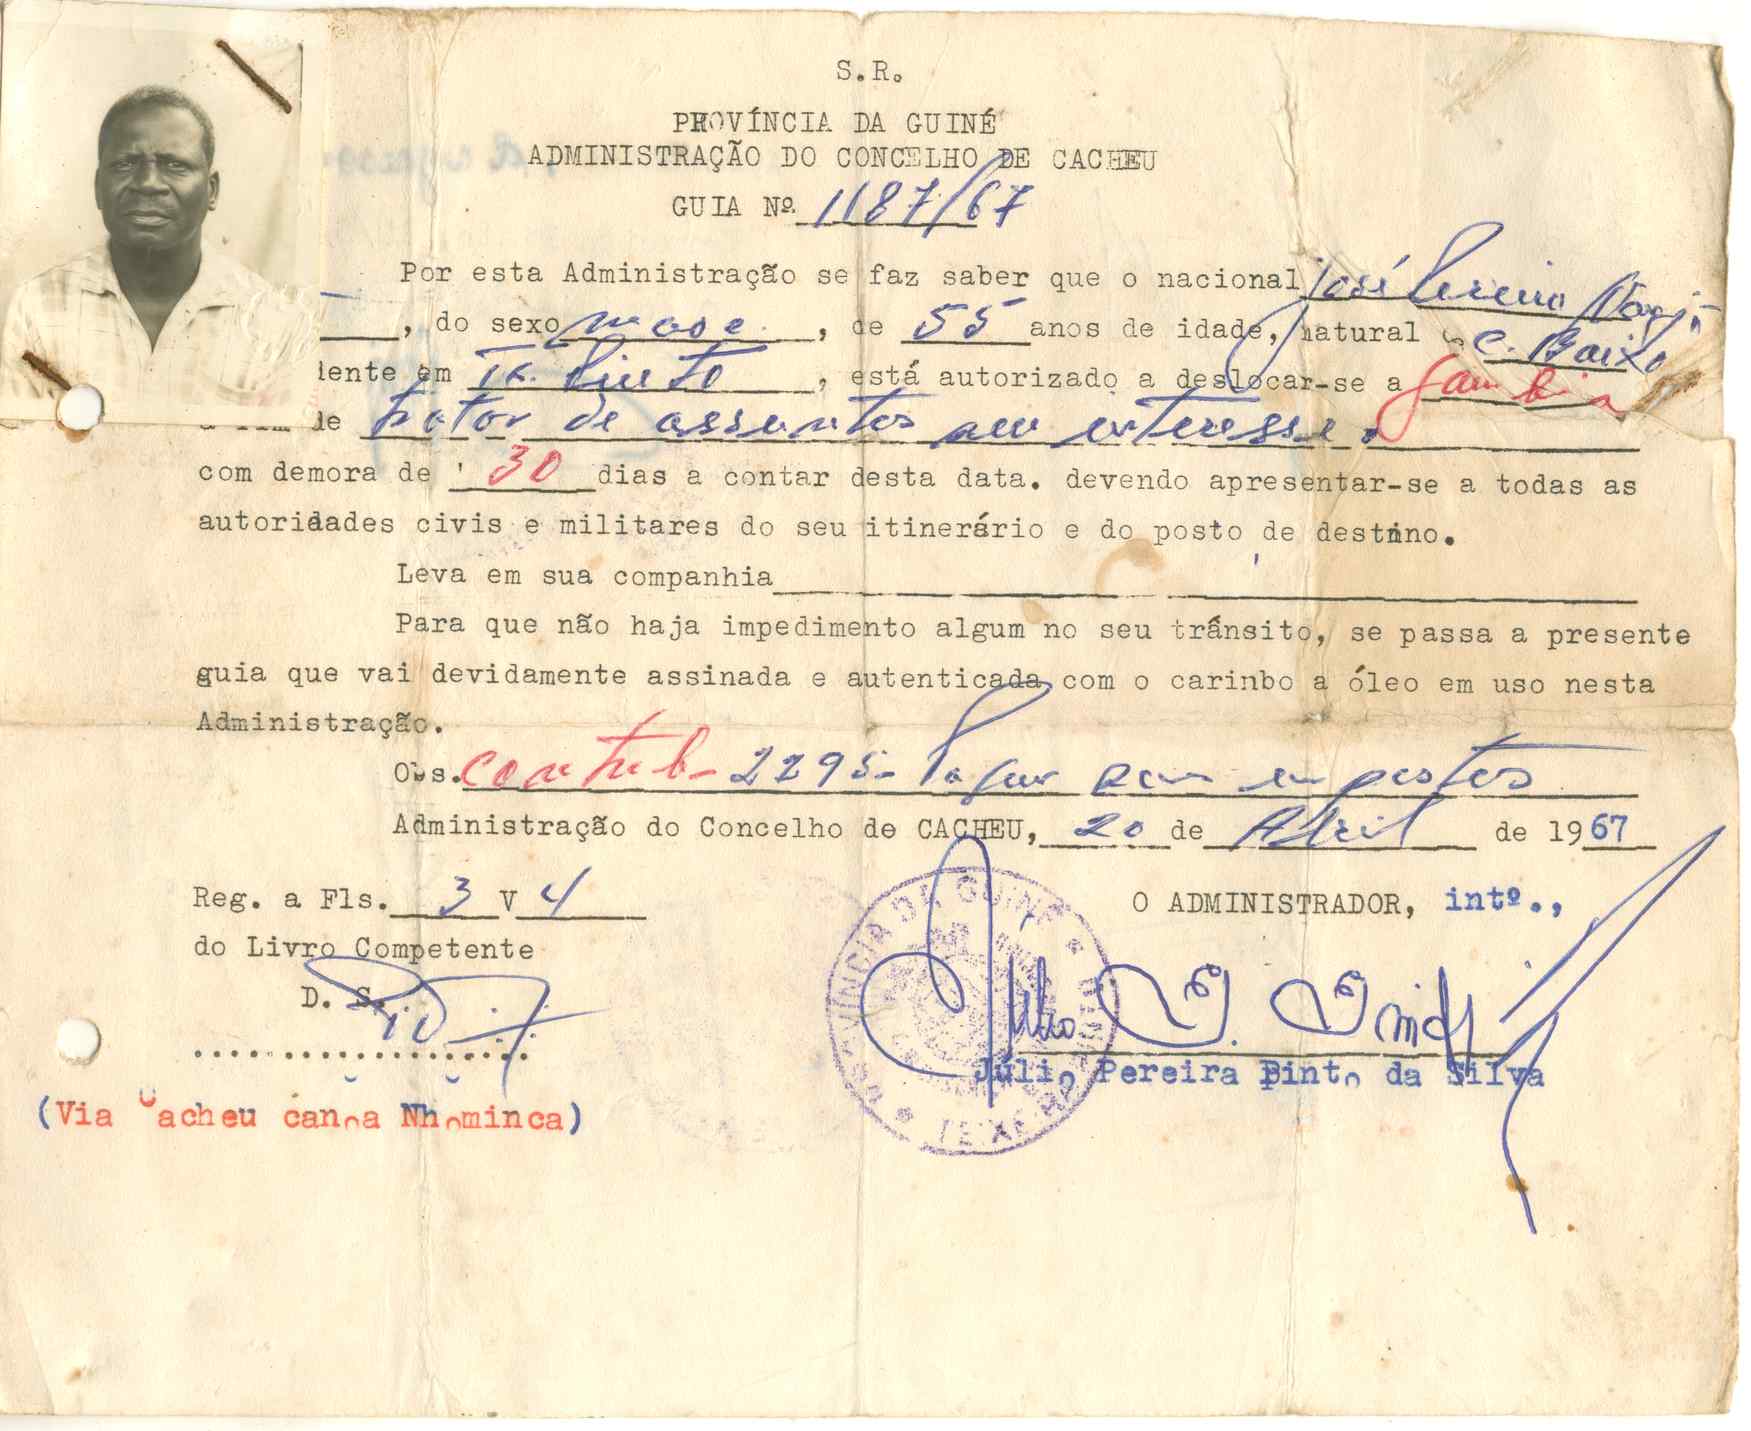 S.R.
PROVÍNCIA DA GUINÉ
ADMINISTRAÇÃO DO CONCELHO DE CACHEU
GUIA Nº 1187/67
Por esta Administração se faz saber que o nacional José Pereira
, do sexo masc. , de 55 anos de idade, natural C. Baixo
dente em Tx. Pinto , está autorizado a deslocar-se a Gambia
a fim de tratar de assuntos seu interesse.
com demora de 30 dias a contar desta data. devendo apresentar-se a todas as
autoridades civis e militares do seu itinerário e do posto de destino.
Leva em sua companhia
Para que não haja impedimento algum no seu trânsito, se passa a presente
guia que vai devidamente assinada e autenticada com o carinbo a óleo em uso nesta
Administração.
Obs. Contrib- 2295- Pagou seus impostos
Administração do Concelho de CACHEU, 20 de Abril de 1967
Reg. a Fls. 3 V 4
O ADMINISTRADOR, intº.,
do Livro Competente
D. S.
PROVÍNCIA DA GUINÉ
TEIXEIRA PINTO
Júlio Pereira Pinto da Silva
(Via Cacheu canoa Nhominca)